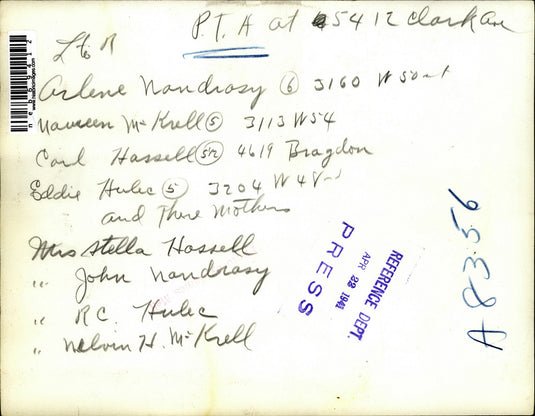 P.T.A at 5412 Clark Ave
L to R
Arlene Nandrasy (6) 3160 W 50
Naureen McKrell (5) 3113 W 54
Carl Hassell (5½) 4619 Bragdon
Eddie Hulec (5) 3204 W 48
and There Mothers
Mrs Stella Hassell
" John Nandrasy
" R.C. Hulec
" Melvin H. McKrell
REFERENCE DEPT.
APR 22 1941
PRESS
A 8356